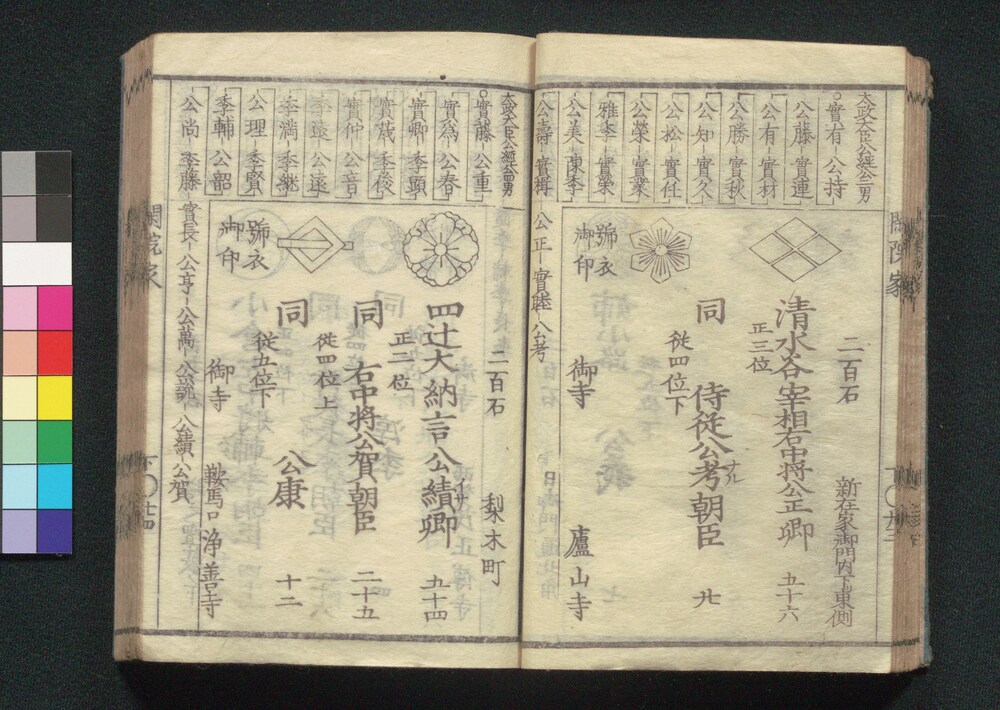 閑院家
太政大臣公経公二男
○實有─公持
公藤─實連
公有─實材
公勝─實秋
公知─實久
公松─實任
公榮─實業
雅季─實榮
公美─實季
公壽─實揖
公正─實睦─公考
二百石
新在家御門内下東側
清水谷宰相右中将公正卿 五十六
正三位
同 侍従公考朝臣 廿
ナル
従四位下
號衣
御印
御寺 廬山寺
太政大臣公經公四男
○實藤─公重
實為─公春
實卿─季顕
實茂─季俊
實仲─公音
季遠─公遠
季満─季継
公理─季賢
季輔─公韶
公尚─季藤
實長─公亨─公萬─公説─公績─公賀
二百石
梨木町
四辻大納言公績卿 五十四
イサ
正二位
同 右中将公賀朝臣 二十五
従四位上
同 公康 十二
従五位下
號衣
御印
御寺 鞍馬口 浄善寺
閑院家
下○廿四